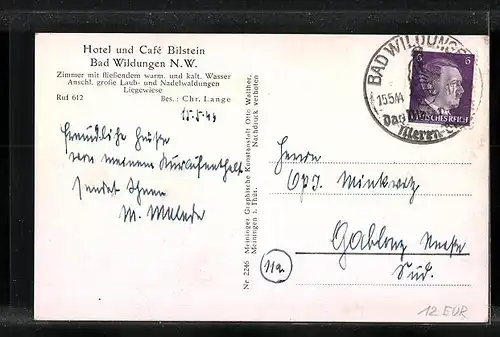 Hotel und Café Bilstein
Bad Wildungen N.W.
Zimmer mit fließendem warm. und kalt. Wasser
Anschl. große Laub- und Nadelwaldungen
Liegewiese
Ruf 612 Bes.: Chr. Lange
Freundliche Grüße
von meinem Kuraufenthalt
sendet Ihnen
M.
Nr 2246 Meininger Graphische Kunstanstalt Otto Walther,
Meiningen i. Thür. Nachdruck verboten
BAD WILDUNGEN
15.5.44
Das
Nieren-
6 6
DEUTSCHES REICH
Herrn
Minkwitz
Gablonz Neisse
Sud.
11a
12 EUR